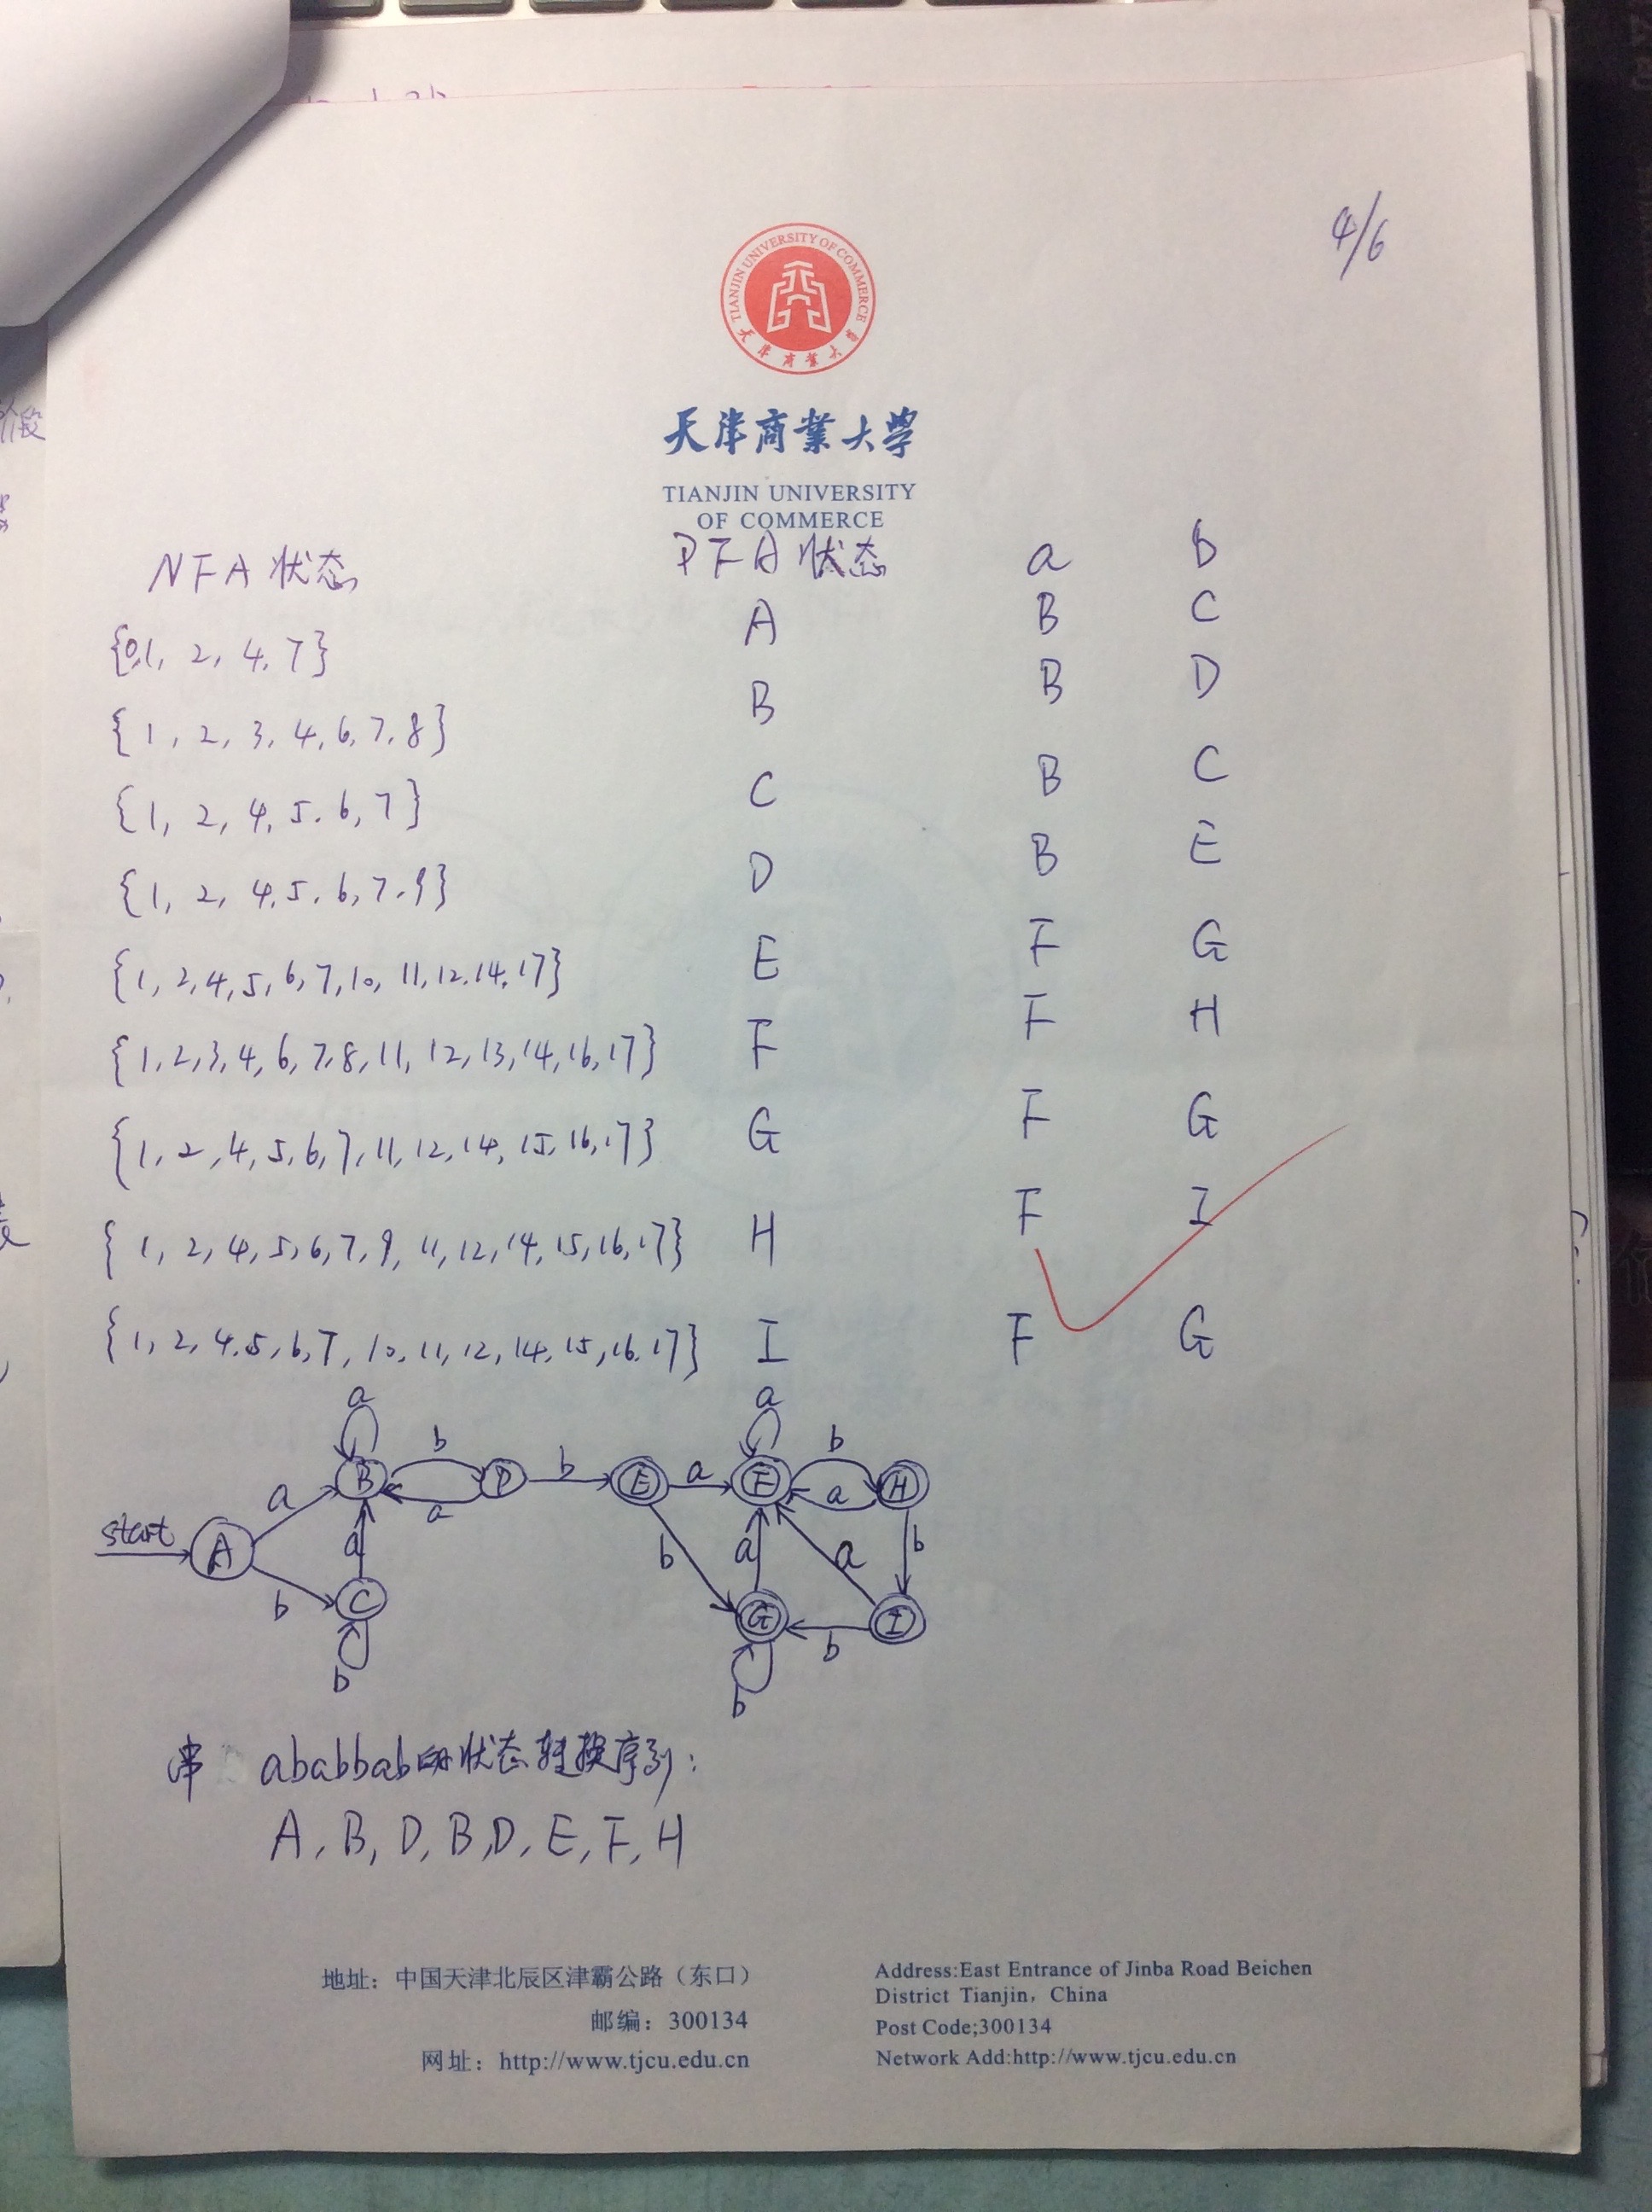 4/6
TIANJIN UNIVERSITY OF COMMERCE
天津商業大學
天津商業大學
TIANJIN UNIVERSITY
OF COMMERCE
NFA状态 DFA状态 a b
{0,1, 2, 4, 7} A B C
{1, 2, 3, 4, 6, 7, 8} B B D
{1, 2, 4, 5, 6, 7} C B C
{1, 2, 4, 5, 6, 7, 9} D B E
{1, 2, 4, 5, 6, 7, 10, 11, 12, 14, 17} E F G
{1, 2, 3, 4, 6, 7, 8, 11, 12, 13, 14, 16, 17} F F H
{1, 2, 4, 5, 6, 7, 11, 12, 14, 15, 16, 17} G F G
{1, 2, 4, 5, 6, 7, 9, 11, 12, 14, 15, 16, 17} H F I
{1, 2, 4, 5, 6, 7, 10, 11, 12, 14, 15, 16, 17} I F G
a a
b b
B D b E a F a H
a a
start A a b a a b
b C G b I
b b
串 ababbab的状态转换序列:
A, B, D, B, D, E, F, H
地址：中国天津北辰区津霸公路（东口）
邮编：300134
网址：http://www.tjcu.edu.cn
Address:East Entrance of Jinba Road Beichen
District Tianjin, China
Post Code;300134
Network Add:http://www.tjcu.edu.cn